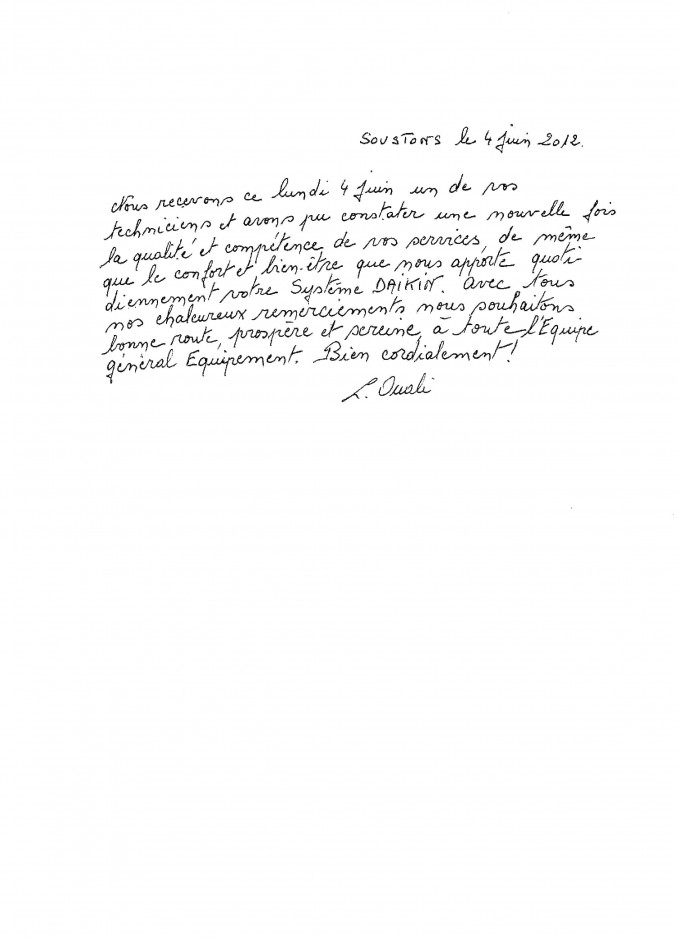 SOUSTONS le 4 Juin 2012.
Nous recevons ce lundi 4 Juin un de vos
techniciens et avons pu constater une nouvelle fois
la qualité et compétence de vos services, de même
que le confort et bien-être que nous apporte quoti
diennement votre Système DAIKIN. Avec tous
nos chaleureux remerciements nous souhaitons
bonne route, prospère et sereine, à toute l'Equipe
général Equipement. Bien cordialement !
L. Ouali